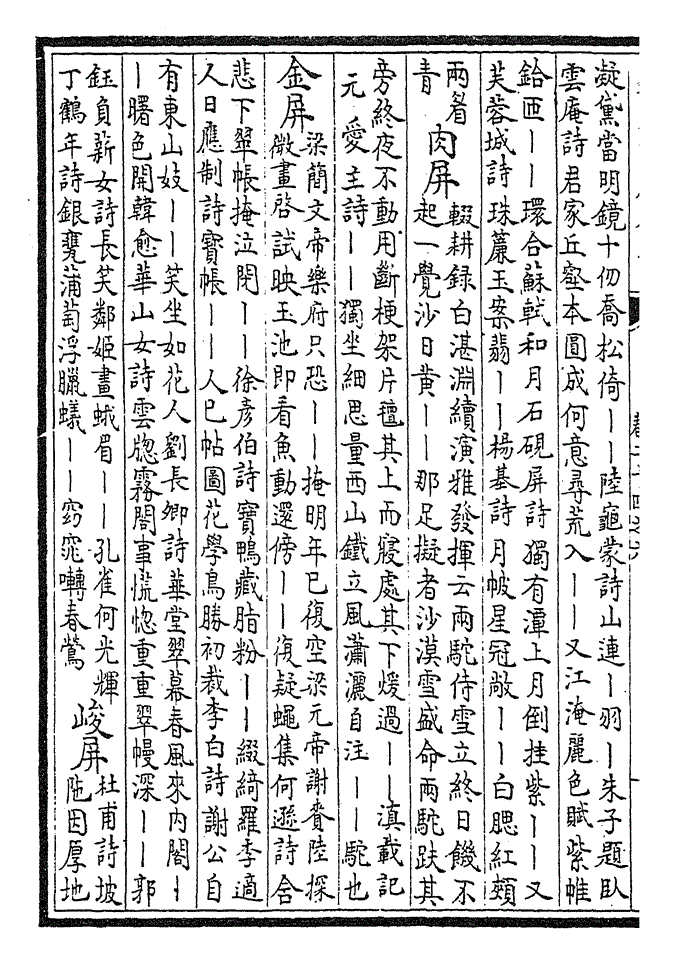 凝黛當明鏡十仞喬松倚丨丨陸龜蒙詩山連丨羽丨朱子題臥
雲庵詩君家丘壑本圓成何意尋荒入丨丨又江淹麗色賦紫帷
鉿匝丨丨環合蘇軾和月石硯屏詩獨有潭上月倒挂紫丨丨又
芙蓉城詩珠簾玉案翡丨丨楊基詩月帔星冠敞丨丨白腮紅頰
兩眉
青
肉屏
輟耕錄白湛淵續演雅發揮云兩駝侍雪立終日饑不
起一覺沙日黃丨丨那足擬者沙漠雪盛命兩駝趺其
旁終夜不動用斷梗架片氊其上而寢處其下煖過丨丨滇載記
元愛主詩丨丨獨坐細思量西山鐵立風瀟灑自注丨丨駝也
金屏
梁簡文帝樂府只恐丨丨掩明年已復空梁元帝謝賚陸探
微畫啓試映玉池即看魚動還傍丨丨復疑蠅集何遜詩含
悲下翠帳掩泣閉丨丨徐彥伯詩寶鴨藏脂粉丨丨綴綺羅李適
人日應制詩寶帳丨丨人已帖圖花學鳥勝初裁李白詩謝公自
有東山妓丨丨笑坐如花人劉長卿詩華堂翠幕春風來內閣丨
丨曙色開韓愈華山女詩雲牕霧閣事慌惚重重翠幔深丨丨郭
鈺負薪女詩長笑鄰姬畫蛾眉丨丨孔雀何光輝
丁鶴年詩銀甕蒲萄浮臘蟻丨丨窈窕囀春鶯
峻屏
杜甫詩坡
陁因厚地